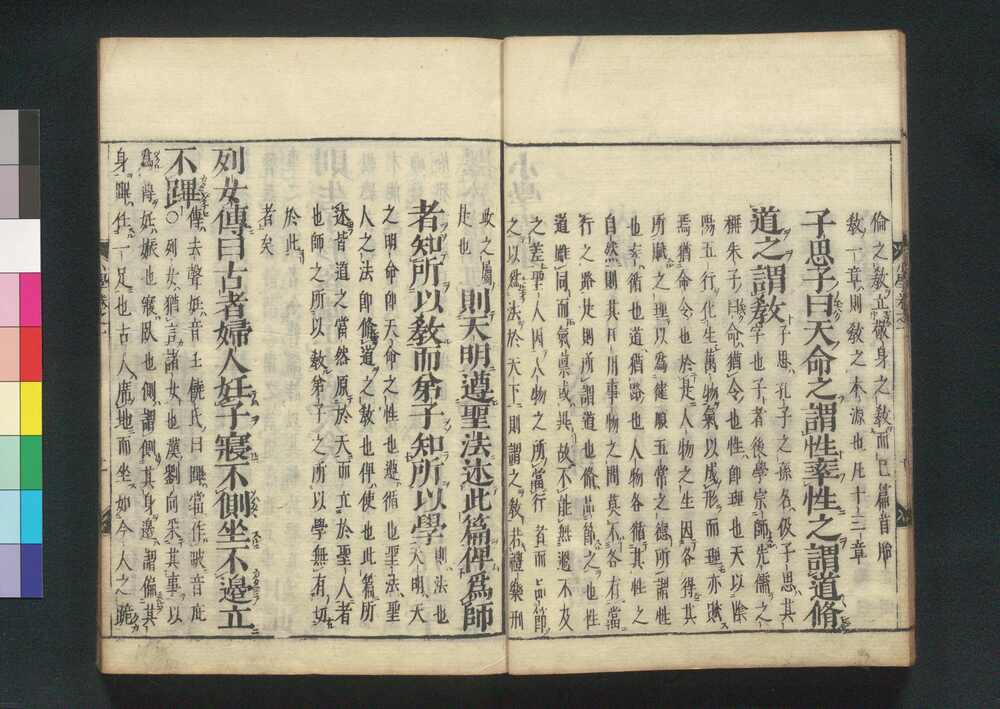 倫之教立敬身之教而已篇首序
教一章則教之本源也凡十三章
子思子曰天命之謂性率性之謂道脩
道之謂教
子思孔子之孫名伋子思其
字也子者後學宗師先儒之
稱朱子曰命猶令也性即理也天以陰
陽五行化生萬物氣以成形而理亦賦
焉猶命令也於是人物之生因各得其
所賦之理以為健順五常之德所謂性
也率循也道猶路也人物各循其性之
自然則其日用事物之間莫不各有當
行之路是則所謂道也脩品節之也性
道雖同而氣稟或異故不能無過不及
之差聖人因人物之所當行者而品節
之以為法於天下則謂之教若禮樂刑
政之屬
是也
則天明遵聖法述此篇俾為師
者知所以教而弟子知所以學
則法也
天明天
之明命即天命之性也遵循也聖法聖
人之法即脩道之教也俾使也此篇所
述皆道之當然原於天而立於聖人者
也師之所以教弟子之所以學無有切
於此
者矣
列女傳曰古者婦人妊子寢不側坐不邊立
不蹕
傳去聲妊音壬饒氏曰蹕當作跛音庇
○列女猶言諸女也漢劉向采其事以
為傳妊娠也寢臥也側謂側其身邊謂偏其
身蹕任一足也古人席地而坐如今人之跪